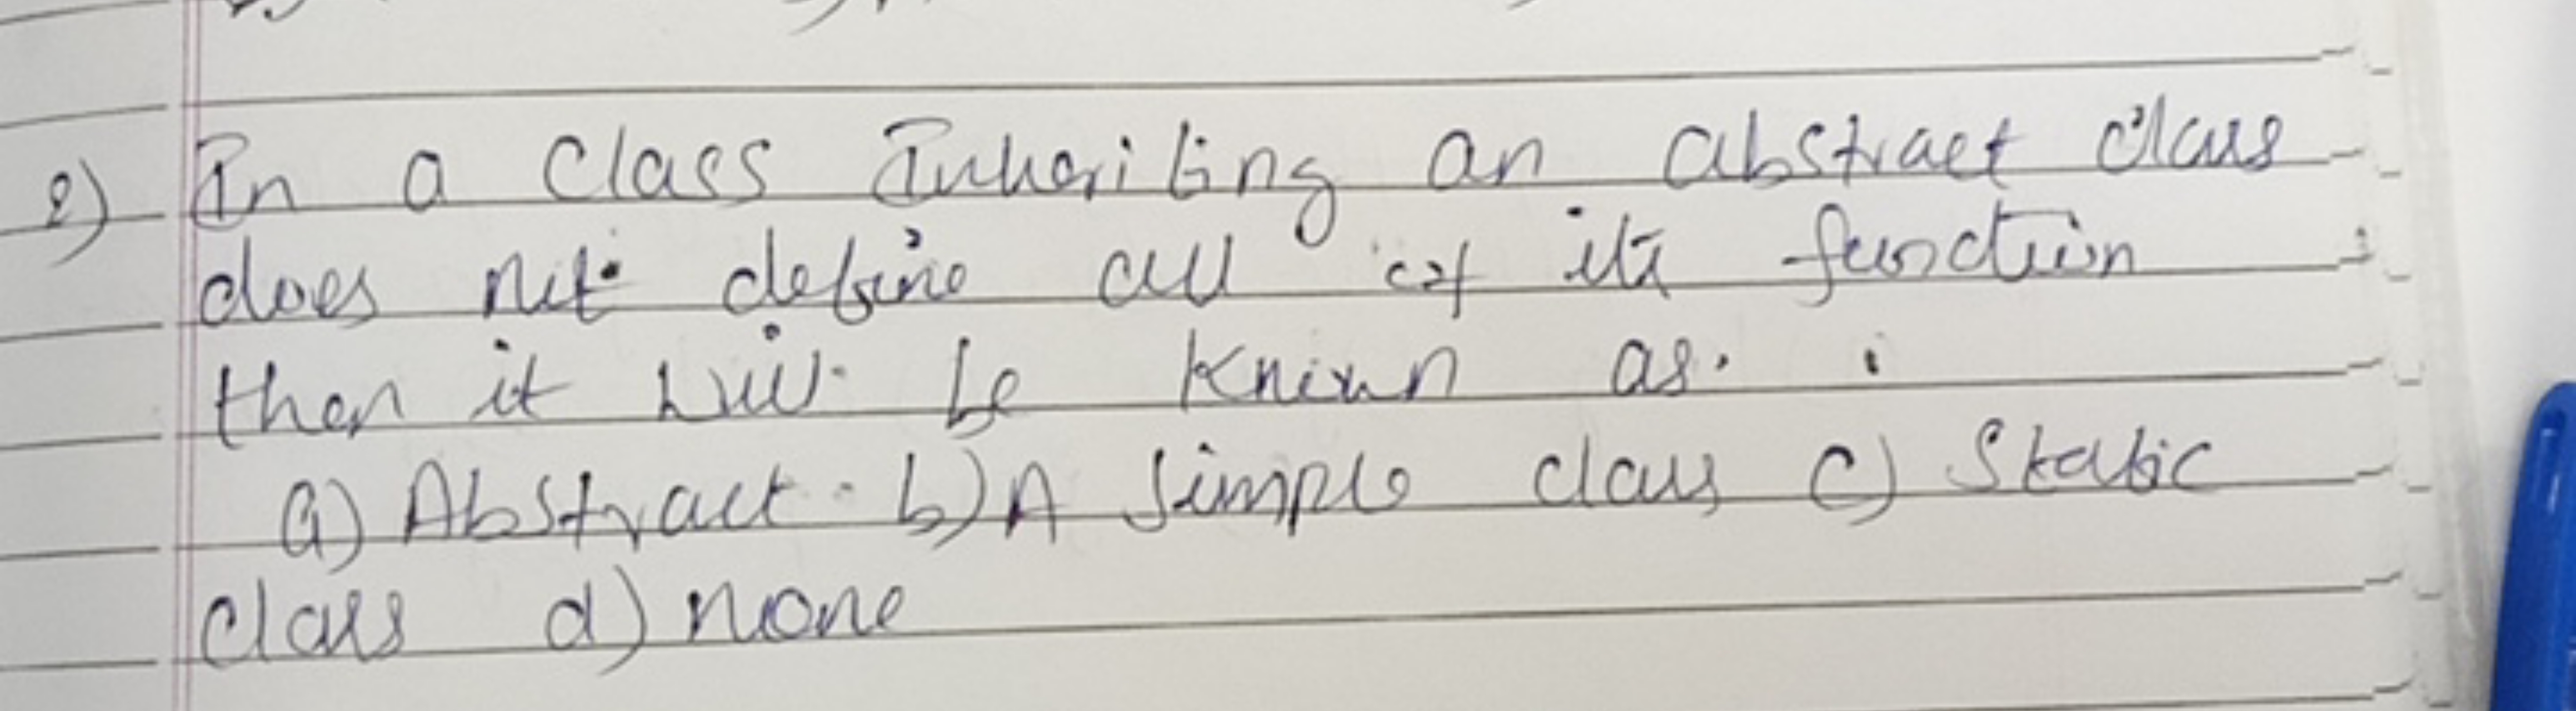 2) In a class Inheriting an abstract class
does not define all of its function
then it will be known as.
a) Abstract b) A simple class c) Static
class d) none